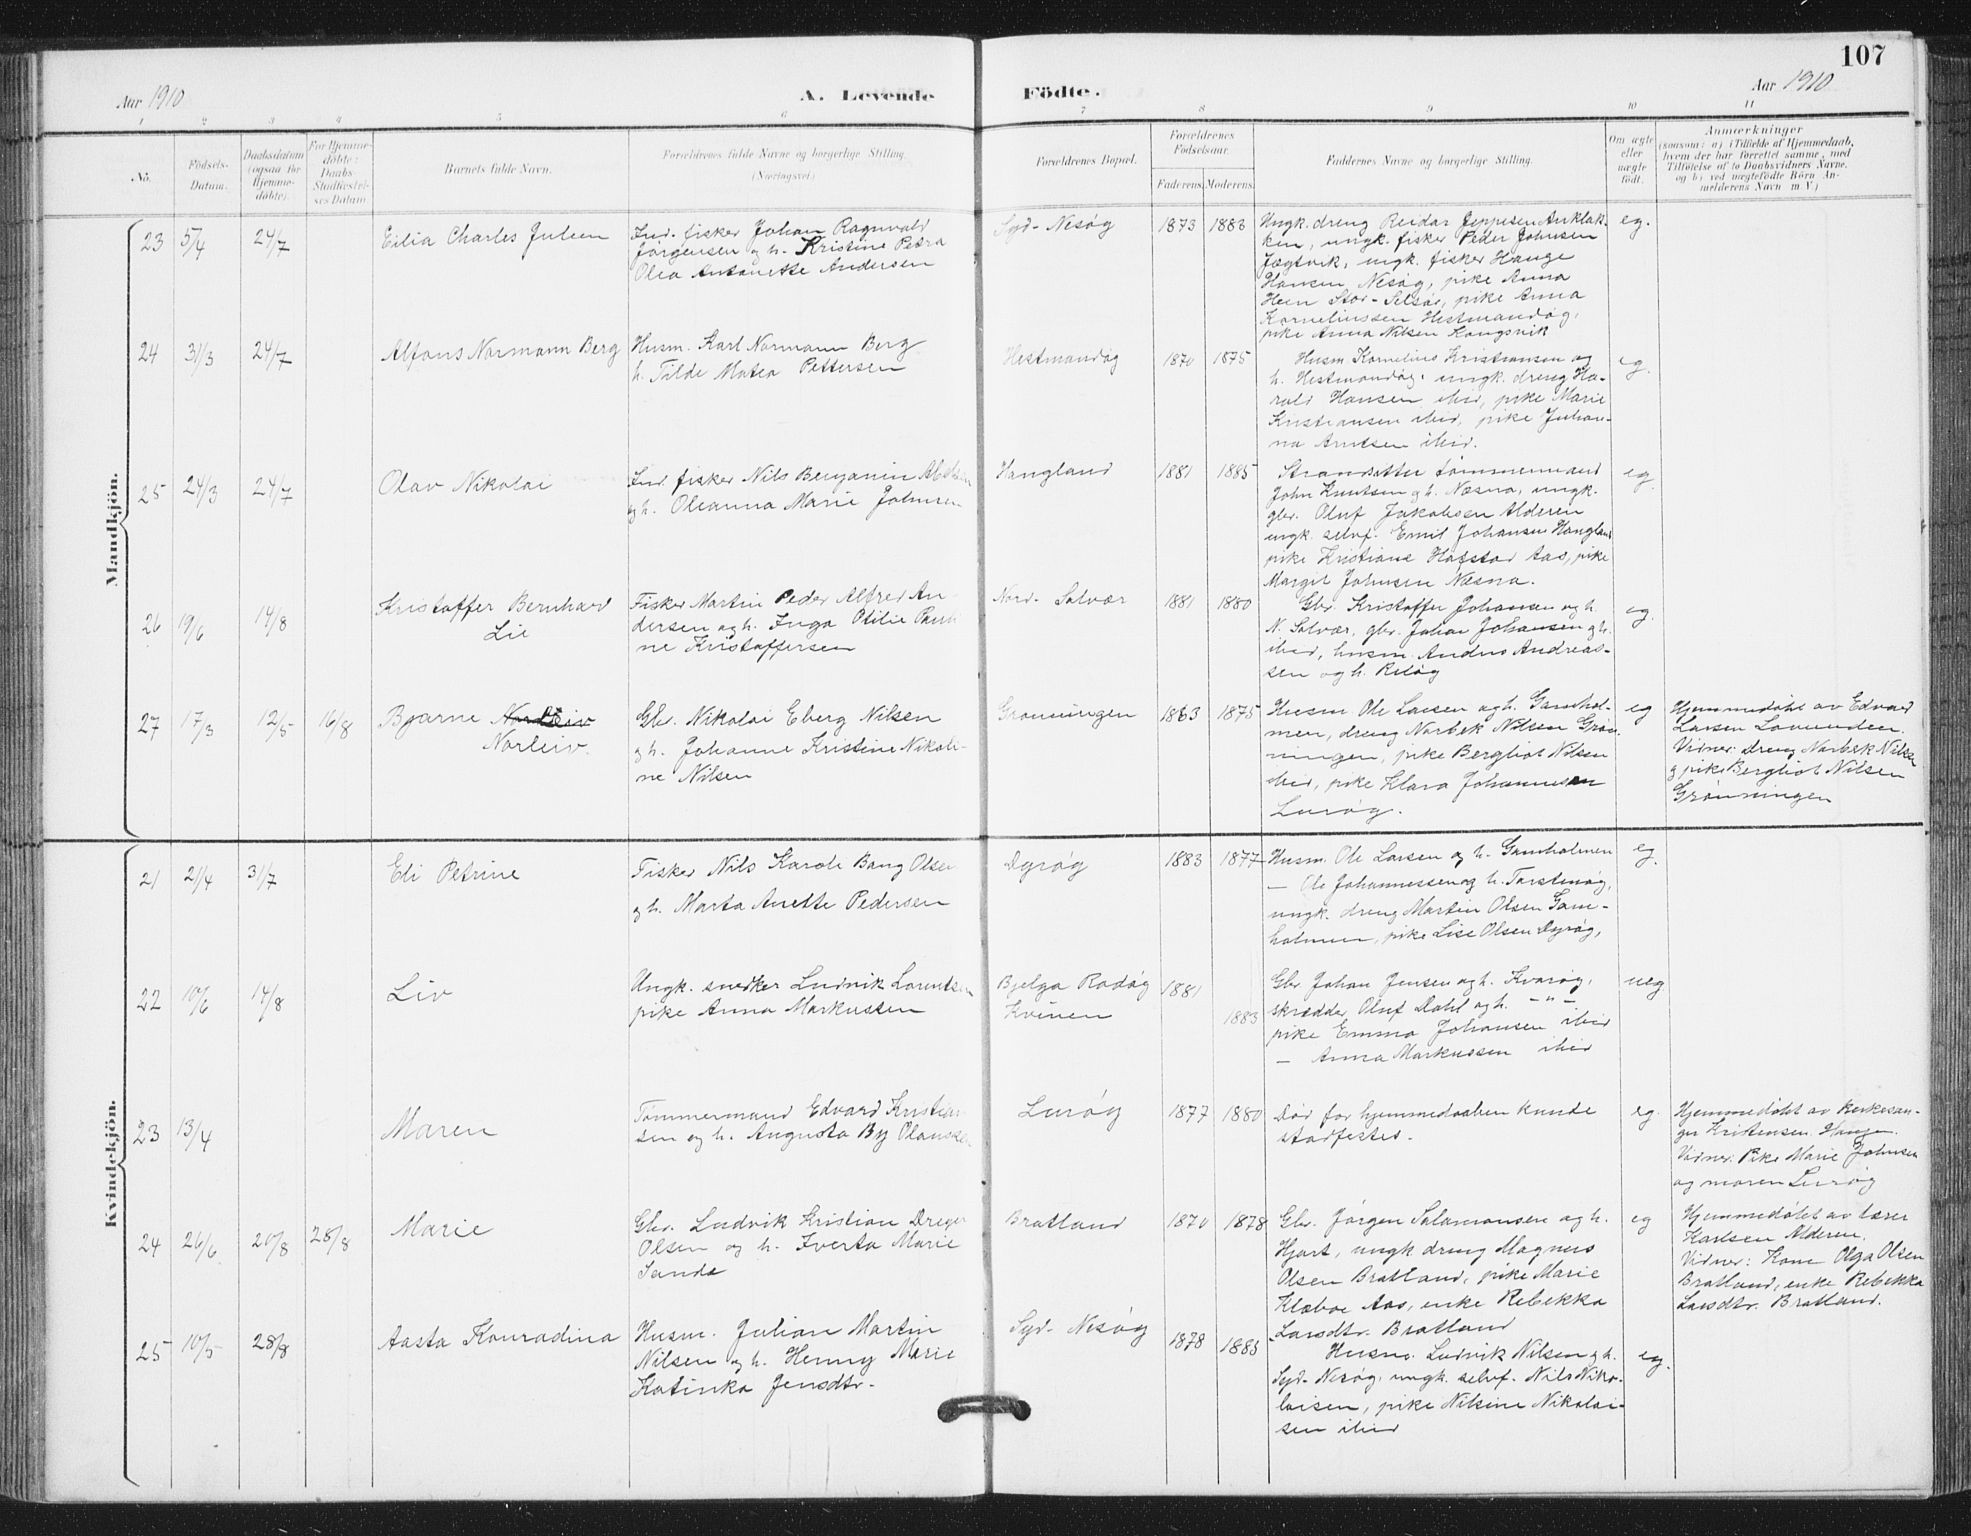 107
Aar 1910
A. Levende
Födte.
Aar 1910
1 2 3 4 5 6 7 8 9 10 11
No.
Födsels-
Datum.
Daabsdatum
(ogsaa for
Hjemme-
döbte).
For Hjemme-
döbte:
Daabs-
Stadfæstel-
ses Datum.
Barnets fulde Navn.
Forældrenes fulde Navne og borgerlige Stilling.
(Næringsvei.)
Forældrenes Bopæl.
Forældrenes
Födselsaar.
Faderens. Moderens.
Faddernes Navne og borgerlige Stilling.
Om ægte
eller
uægte
födt.
Anmærkninger
(saasom: a) i Tilfælde af Hjemmedaab,
hvem der har forrettet samme, med
Tilföielse af to Daabsvidners Navne,
og b) ved uægtefödte Börn An-
melderens Navn m. V.)
Mandkjön.
23 5/4 24/7
Eilia Charles Juleen
Ind. fisker Johan Ragnvald
Jørgensen og h. Kristine Petra
Olea Antonette Andersen
Syd-Nesøg
1873 1883
Ungk. dreng Reidar Jeppesen Anklak-
ken, ungk. fisker Peder Johnsen
Jægtvik, ungk. fisker Hauge
Hansen Nesøg, pike Anna
Heen Stor-Selsør, pike Anna
Korneliussen Hestmandøg,
pike Anna Nilsen Kongsvik
eg.
24 31/3 24/7
Alfons Normann Berg
Husm. Karl Normann Berg
h. Tilde Matea Pettersen
Hestmandøg
1870 1875
Husm Kornelius Kristiansen og
h. Hestmandøg, ungk. dreng Ha-
rald Hansen ibid, pike Marie
Kristiansen ibid, pike Johan-
na Arntsen ibid.
eg.
25 24/3 24/7
Olav Nikolai
Ind. fisker Nils Benjamin
og h. Oleanna Marie Johnsen
Hangland
1881 1885
Strandsitter tømmermand
John Knutsen og h. Næsna, ungk.
gbr. Oluf Jakobsen Alderen
ungk. selvf. Emil Johansen Hangland
pike Kristiane Hafstad Aas, pike
Margit Johnsen Næsna.
eg.
26 19/6 14/8
Kristoffer Bernhard
Lie
Fisker Martin Peder Alfred An-
dersen og h. Inga Otilie Pauli
ne Kristoffersen
Nord-Solvær
1881 1880
Gbr. Kristoffer Johansen og h.
N. Solvær, gbr. Johan Johansen og h.
ibid, husm. Anders Andreas-
sen og h. Reløg
eg.
27 17/3 12/5 16/8
Bjarne Nordleiv
Norleiv.
Gbr. Nikolai Eberg Nilsen
og h. Johanne Kristine Nikoli-
ne Nilsen
Grønningen
1863 1875
Husm Ole Larsen og h. Gamhol-
men, dreng Norbek Nilsen Grøn-
ningen, pike Bergliot Nilsen
ibid, pike Klara Johannesen
Lurøg.
eg
Hjemmedøbt av Edvard
Larsen Lovunden.
Vidner: dreng Norbek Nilsen
og pike Bergliot Nilsen
Grønningen
Kvindekjön.
21 21/4 31/7
Eli Petrine
Fisker Nils Karole Bang Olsen
og h. Marta Anette Pedersen
Dyrøg
1883 1877
Husm. Ole Larsen og h. Gamholmen
— Ole Johannessen og h. Torstenøg,
ungk. dreng Martin Olsen Gam-
holmen, pike Lise Olsen Dyrøg,
eg.
22 10/6 14/8
Liv
Ungk. snedker Ludvik Lorentsen
pike Anna Markussen
Bjelga Rødøg
Kvinen
1881
1883
Gbr Johan Jensen og h. Kvarøg,
skrædder Oluf Dahl og h. — " —
pike Emma Johansen ibid
— Anna Markussen ibid
ueg
23 13/4
Maren
Tømmermand Edvard Kristian
sen og h. Augusta By Olaussen
Lurøg
1877 1880
Død før hjemmedaaben kunde
stadfestes.
eg.
Hjemmedøbt av kirkesan-
ger Kristensen Haugen.
Vidner: Pike Marie Johnsen
og maren Lurøg
24 26/6 20/8 28/8
Marie
Gbr. Ludvik Kristian Dreyer
Olsen og h. Iverta Marie
Sande
Bratland
1870 1878
Gbr. Jørgen Salamonsen og h.
Hjart, ungk dreng Magnus
Olsen Bratland, pike Marie
Klæboe Aas, enke Rebekka
Larsdtr. Bratland
eg
Hjemmedøbt av lærer
Karlsen Alderen.
Vidner: Kone Olga Olsen
Bratland, enke Rebekka
Larsdtr. Bratland.
25 10/5 28/8
Aasta Konradina
Husm. Julian Martin
Nilsen og h. Henny Marie
Katinka Jensdtr.
Syd-Nesøg
1878 1885
Husm. Ludvik Nilsen og h.
Syd-Nesøg, ungk. selvf. Nils Niko-
laisen, pike Nilsine Nikolai-
sen ibid
eg.